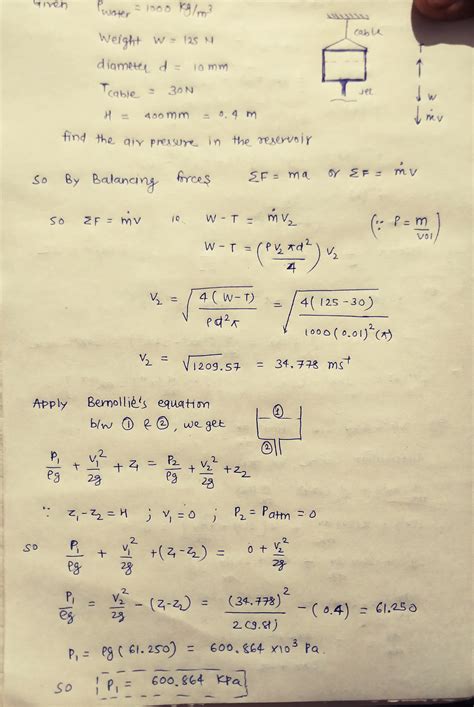 Given ρwater = 1000 kg/m³
cable
Weight W = 125 N
diameter d = 10 mm
Tcable = 30N
Jet
W
H = 400 mm = 0.4 m
ṁv
find the air pressure in the reservoir
so By Balancing forces ΣF = ma or ΣF = ṁv
so ΣF = ṁv ie. W - T = ṁV₂ (∵ ρ = m/vol)
W - T = (ρ V₂ πd²/4) V₂
V₂ = √(4(W-T)/ρd²π) = √(4(125-30)/1000(0.01)²(π))
V₂ = √1209.57 = 34.778 ms⁻¹
Apply Bernollie's equation
b/w ① & ②, we get
①
②
P₁/ρg + V₁²/2g + z₁ = P₂/ρg + V₂²/2g + z₂
∵ z₁-z₂ = H ; V₁ = 0 ; P₂ = Patm = 0
so P₁/ρg + V₁²/2g + (z₁-z₂) = 0 + V₂²/2g
P₁/ρg = V₂²/2g - (z₁-z₂) = (34.778)²/2(9.81) - (0.4) = 61.250
P₁ = ρg (61.250) = 600.864 x10³ Pa.
so P₁ = 600.864 KPa